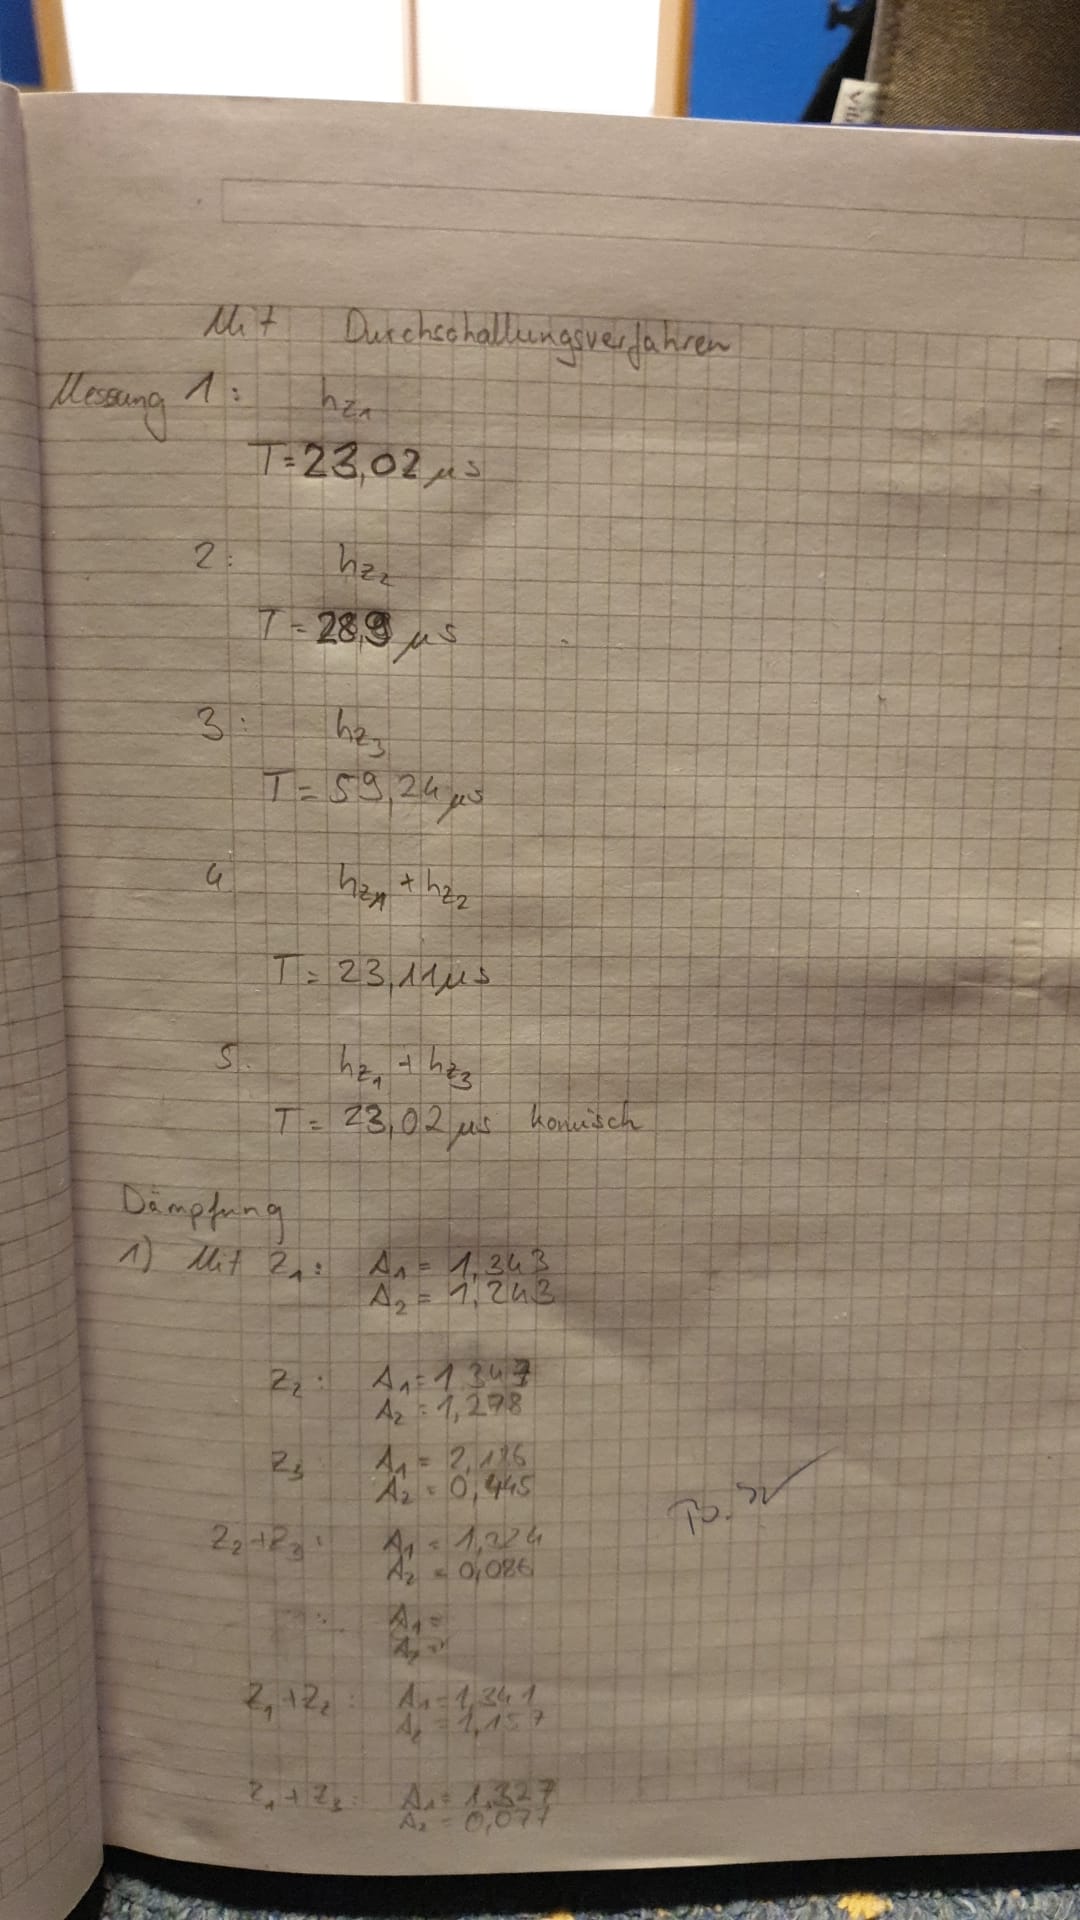 Mit Durchschallungsverfahren
Messung 1: hz1
T=23,02 µs
2: hz2
T=28,9 µs
3: hz3
T= 59,24 µs
4 hz1 + hz2
T= 23,11 µs
5. hz1 + hz3
T= 23,02 µs komisch
Dämpfung
1) Mit Z1: A1 = 1,343
A2 = 1,243
Z2: A1=1,343
A2=1,278
Z3 A1 = 2,186
A2 = 0,445
Z2+Z3: A1 = 1,224
A2 = 0,086
A1 =
A2 =
Z1+Z2: A1=1,341
A2=1,157
Z1+Z3: A1= 1,327
A2= 0,077